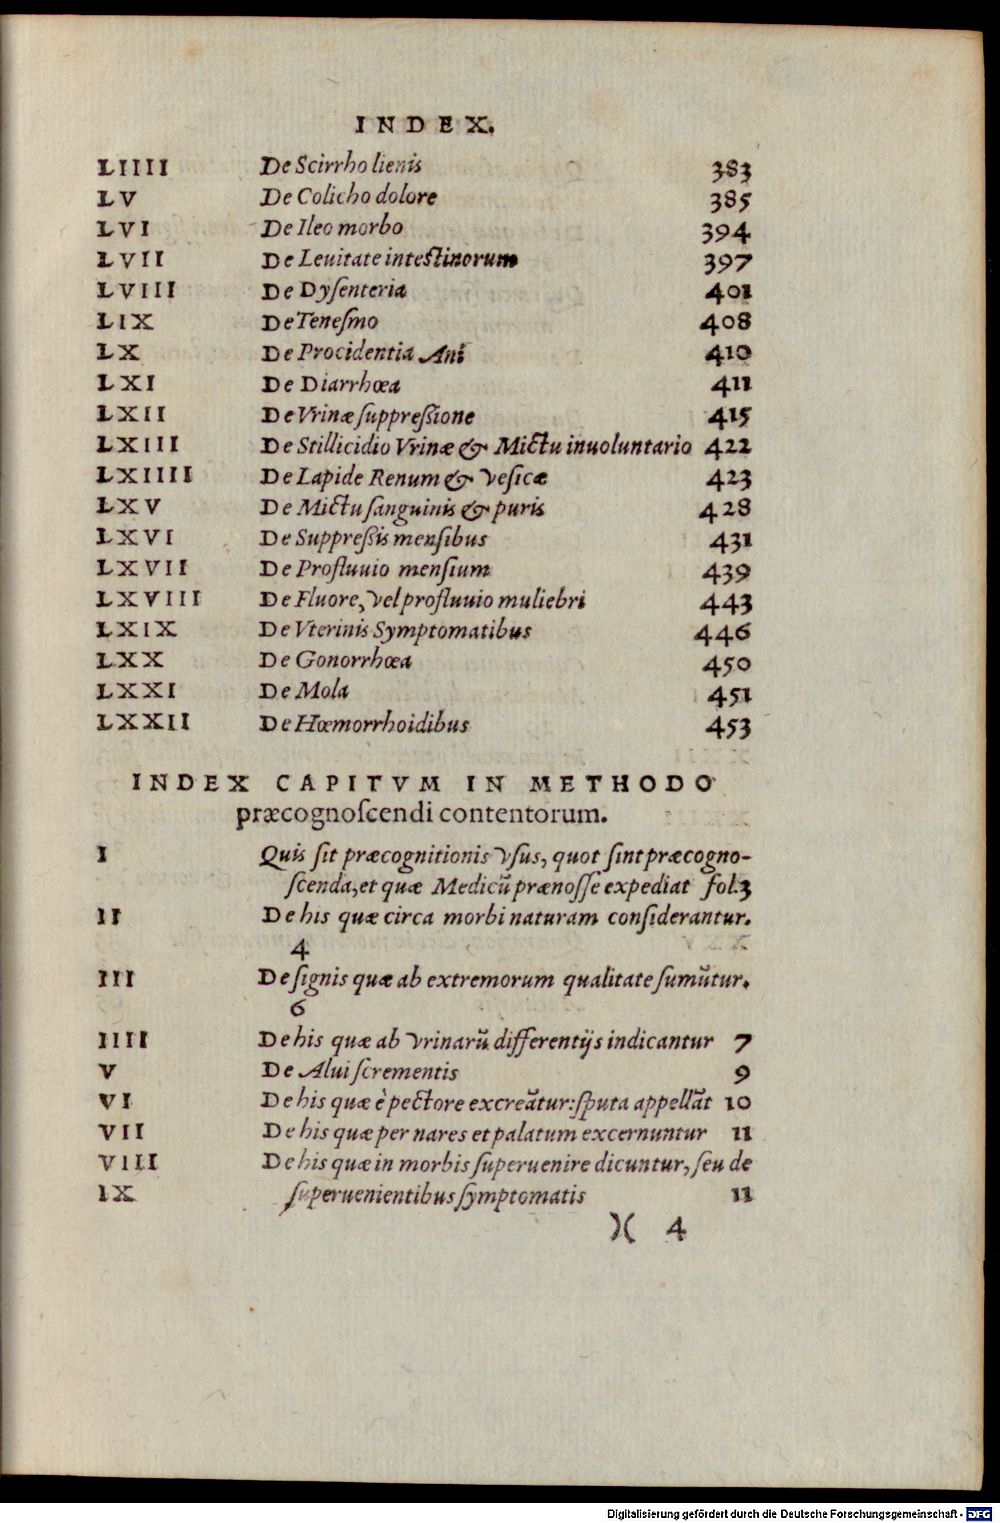 INDEX.
LIIII De Scirrho lienis 383
LV De Colicho dolore 385
LVI De Ileo morbo 394
LVII De Leuitate intestinorum 397
LVIII De Dyſenteria 401
LIX De Teneſmo 408
LX De Procidentia Ani 410
LXI De Diarrhœa 411
LXII De Vrinæ ſuppreſſione 415
LXIII De Stillicidio Vrinæ & Mictu inuoluntario 422
LXIIII De Lapide Renum & veſicæ 423
LXV De Mictu ſanguinis & puris 428
LXVI De Suppreſſis menſibus 431
LXVII De Profluuio menſium 439
LXVIII De Fluore, vel profluuio muliebri 443
LXIX De Vterinis Symptomatibus 446
LXX De Gonorrhœa 450
LXXI De Mola 451
LXXII De Hœmorrhoidibus 453
INDEX CAPITVM IN METHODO
præcognoſcendi contentorum.
I Quis ſit præcognitionis vſus, quot ſint præcogno-
ſcenda, et quæ Medicū prænoſſe expediat fol.3
II De his quæ circa morbi naturam conſiderantur.
4
III De ſignis quæ ab extremorum qualitate ſumūtur.
6
IIII De his quæ ab vrinarū differentijs indicantur 7
V De Alui ſcrementis 9
VI De his quæ è pectore excreātur: ſputa appellāt 10
VII De his quæ per nares et palatum excernuntur 11
VIII De his quæ in morbis ſuperuenire dicuntur, ſeu de
IX ſuperuenientibus ſymptomatis 11
)( 4
Digitalisierung gefördert durch die Deutsche Forschungsgemeinschaft - DFG